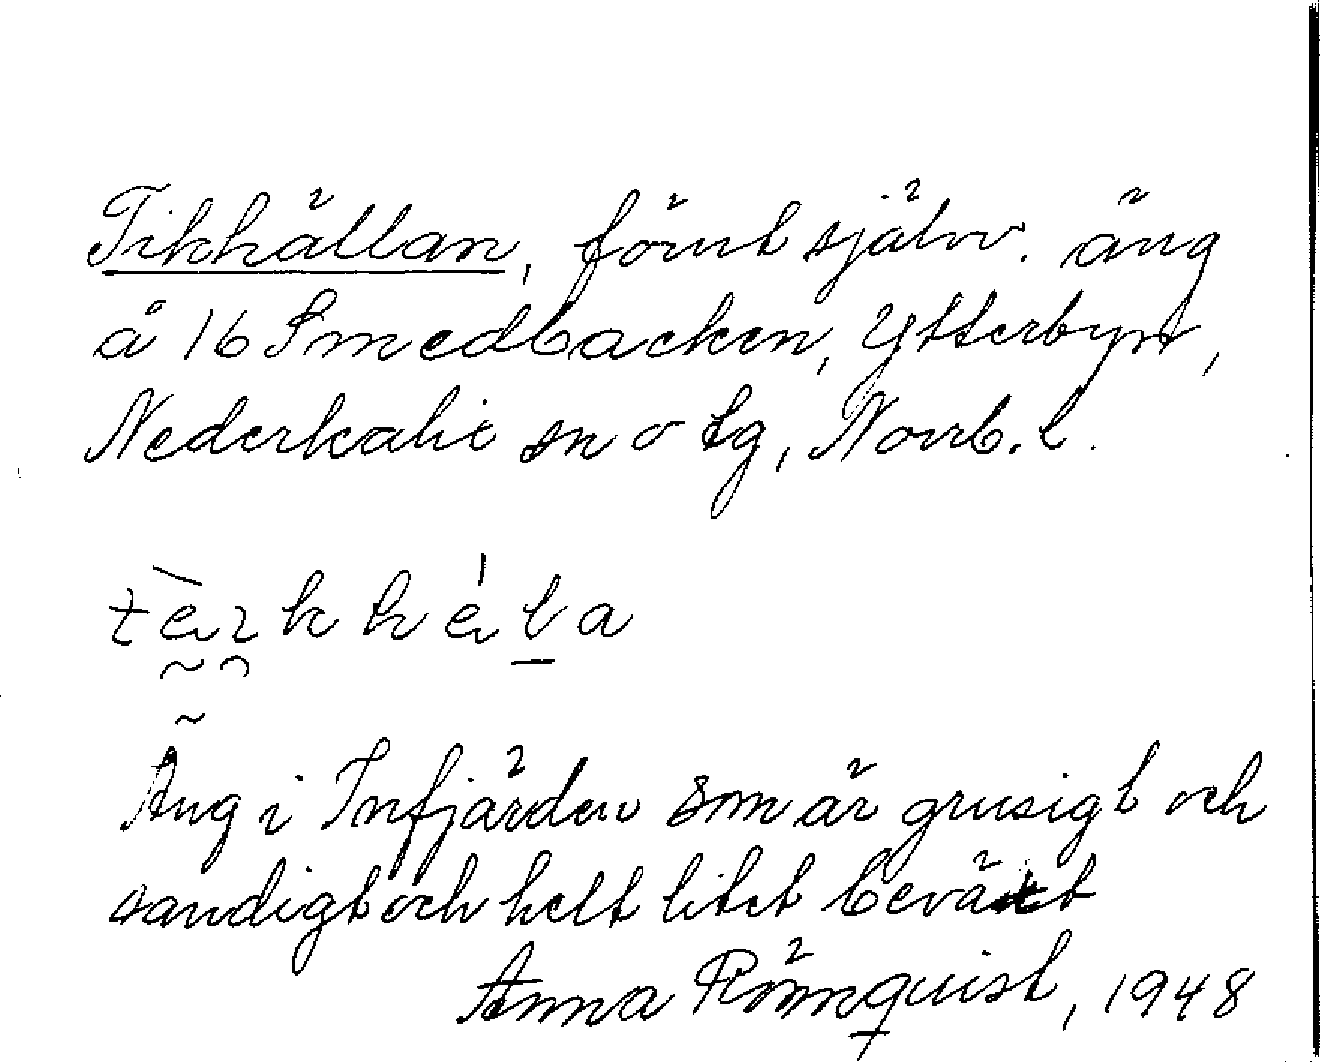 Tikhällan, förut självv. äng
å 16 Smedbacken, Ytterbyn,
Nederkalix sn o tg, Norrb. l.
Äng i Infjärden som är grusigt och
sandigt och helt litet beväxt
Anna Rönnquist, 1948